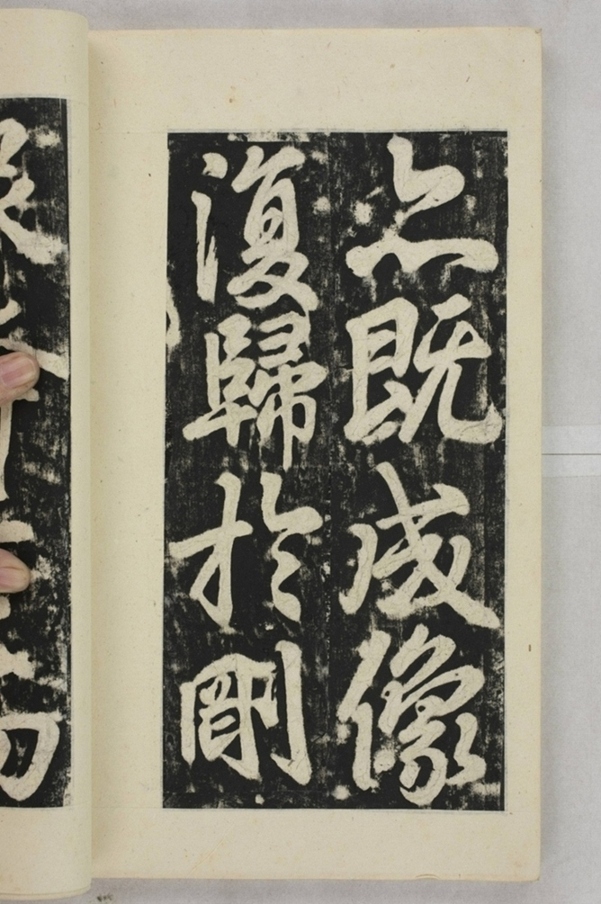 之既成像
復歸於剛